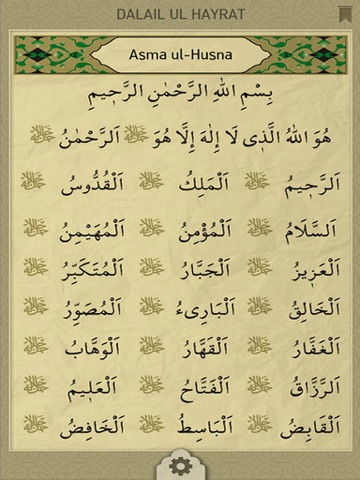 DALAIL UL HAYRAT
Asma ul-Husna
بِسْمِ اللهِ الرَّحْمٰنِ الرَّحٖيمِ
هُوَ اللهُ الَّذٖي لَا إِلٰهَ إِلَّا هُوَ ﷻ اَلرَّحْمٰنُ ﷻ
اَلرَّحٖيمُ ﷻ اَلْمَلِكُ ﷻ اَلْقُدُّوسُ ﷻ
اَلسَّلَامُ ﷻ اَلْمُؤْمِنُ ﷻ اَلْمُهَيْمِنُ ﷻ
اَلْعَزٖيزُ ﷻ اَلْجَبَّارُ ﷻ اَلْمُتَكَبِّرُ ﷻ
اَلْخَالِقُ ﷻ اَلْبَارِىءُ ﷻ اَلْمُصَوِّرُ ﷻ
اَلْغَفَّارُ ﷻ اَلْقَهَّارُ ﷻ اَلْوَهَّابُ ﷻ
اَلرَّزَّاقُ ﷻ اَلْفَتَّاحُ ﷻ اَلْعَلٖيمُ ﷻ
اَلْقَابِضُ ﷻ اَلْبَاسِطُ ﷻ اَلْخَافِضُ ﷻ